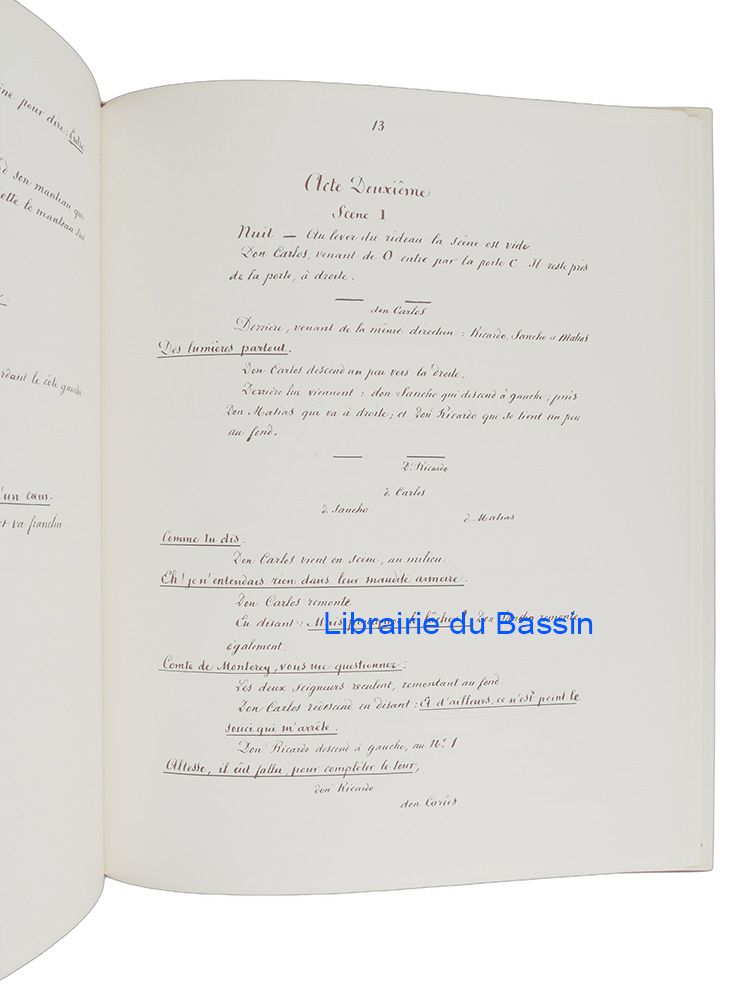 ène pour dire: Enfin
d son manteau que
jette le manteau sur
rdant le côté gauche
'un cœur.
va franchir
13
Acte Deuxième
Scène 1
Nuit — Au lever du rideau la scène est vide
Don Carlos, venant de O entre par la porte C. Il reste près
de la porte, à droite.
don Carlos
Derrière, venant de la même direction: Ricardo, Sancho et Matias
Des lumières partout.
Don Carlos descend un peu vers la droite.
Derrière lui viennent: don Sancho qui descend à gauche; puis
Don Matias qui va à droite; et Don Ricardo qui se tient un peu
au fond.
D. Ricardo
d. Carlos
d. Sancho
d. Matias
Comme tu dis.
Don Carlos vient en scène, au milieu.
Eh! je n'entendais rien dans leur maudite armoire.
Don Carlos remonte
En disant: Mais
Librairie du Bassin
remonte
également.
Comte de Monterey, vous me questionnez.
Les deux seigneurs reculent, remontant au fond.
Don Carlos redescend en disant: Et d'ailleurs, ce n'est point le
souci qui m'arrête.
Don Ricardo descend à gauche, au No. 1
Altesse, il eût fallu, pour compléter le tour,
don Ricardo
don Carlos